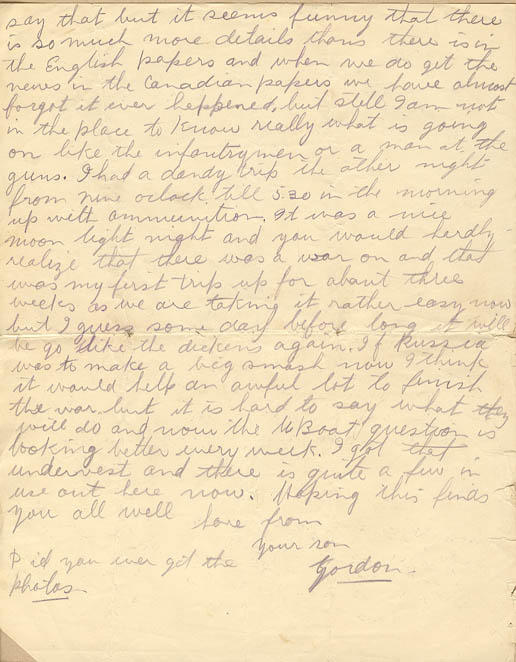 say that but it seems funny that there
is so much more details thans there is in
the English papers and when we do get the
news in the Canadian papers we have almost
forgot it ever happened, but still I am not
in the place to know really what is going
on like the infantrymen or a man at the
guns. I had a dandy trip the other night
from nine oclock till 5.30 in the morning
up with ammunition. It was a nice
moon light night and you would hardly
realize that there was a war on and that
was my first trip up for about three
weeks as we are taking it rather easy now
but I guess some day before long it will
be go like the dickens again. If Russia
was to make a big smash now I think
it would help an awful lot to finish
the war but it is hard to say what they
will do and now the U Boat question is
looking better every week. I got that
undervest and there is quite a few in
use out here now. Hoping this finds
you all well
love from
your son
Gordon.
Did you ever get the
photos